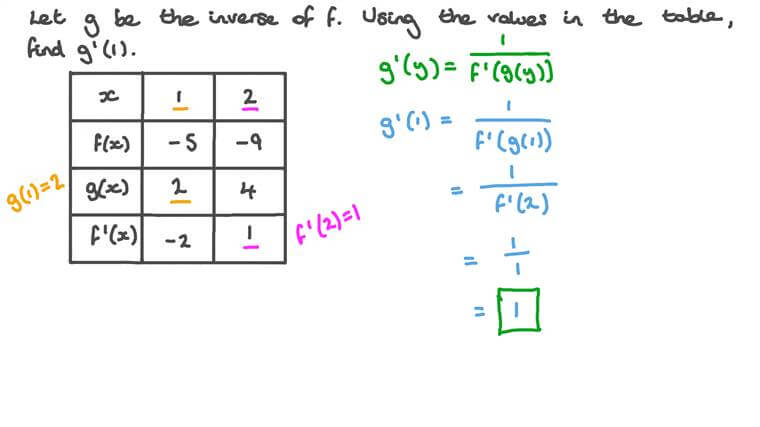 Let g be the inverse of f. Using the values in the table,
find g'(1).
x 1 2
f(x) -5 -9
g(x) 2 4
f'(x) -2 1
g(1)=2
f'(2)=1
g'(y) = 1/f'(g(y))
g'(1) = 1/f'(g(1))
= 1/f'(2)
= 1/1
= 1